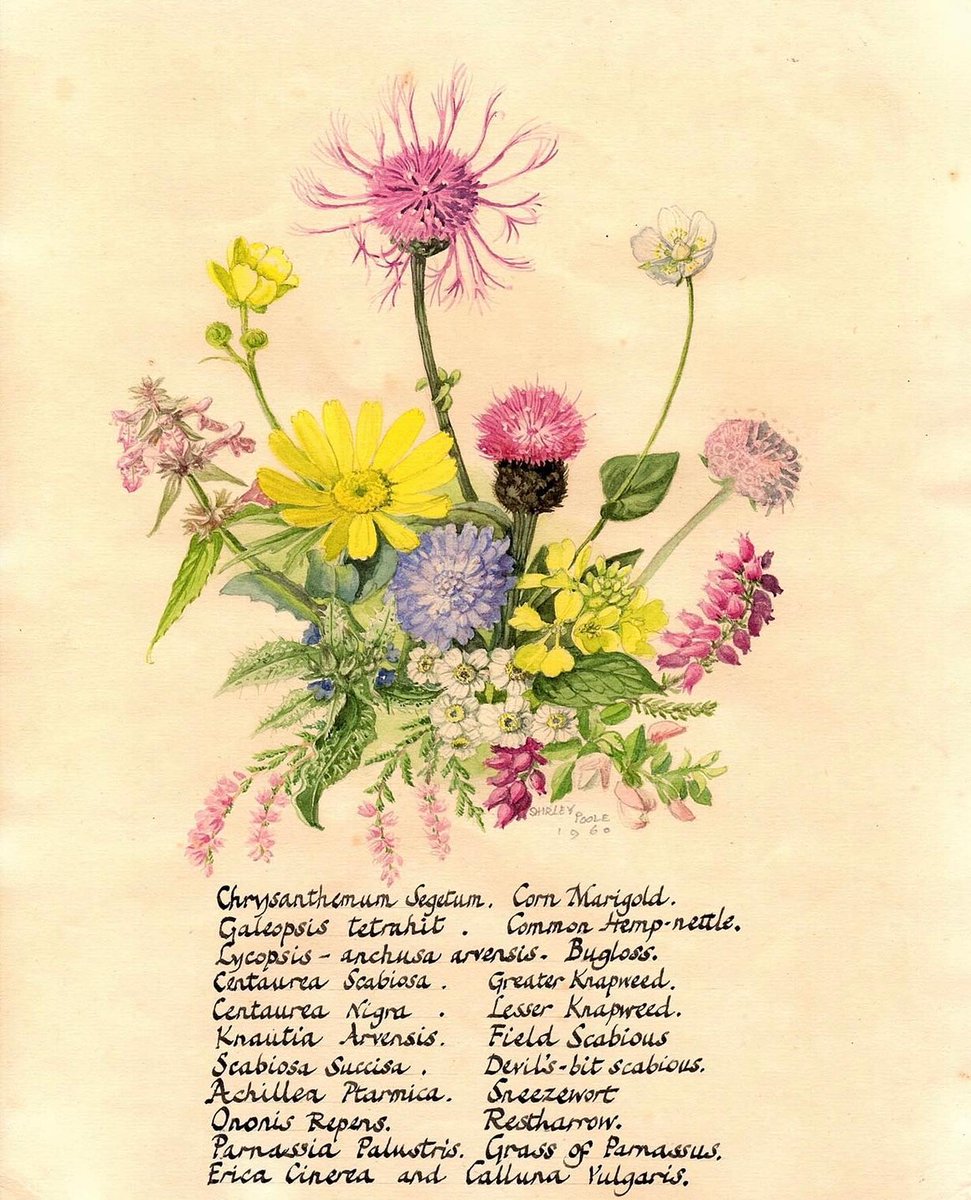 SHIRLEY
POOLE
1960
Chrysanthemum Segetum. Corn Marigold.
Galeopsis tetrahit . Common Hemp-nettle.
Lycopsis - anchusa arvensis. Bugloss.
Centaurea Scabiosa . Greater Knapweed.
Centaurea Nigra . Lesser Knapweed.
Knautia Arvensis. Field Scabious
Scabiosa Succisa . Devil's-bit scabious.
Achillea Ptarmica. Sneezewort
Ononis Repens. Restharrow.
Parnassia Palustris. Grass of Parnassus.
Erica Cinerea and Calluna Vulgaris.